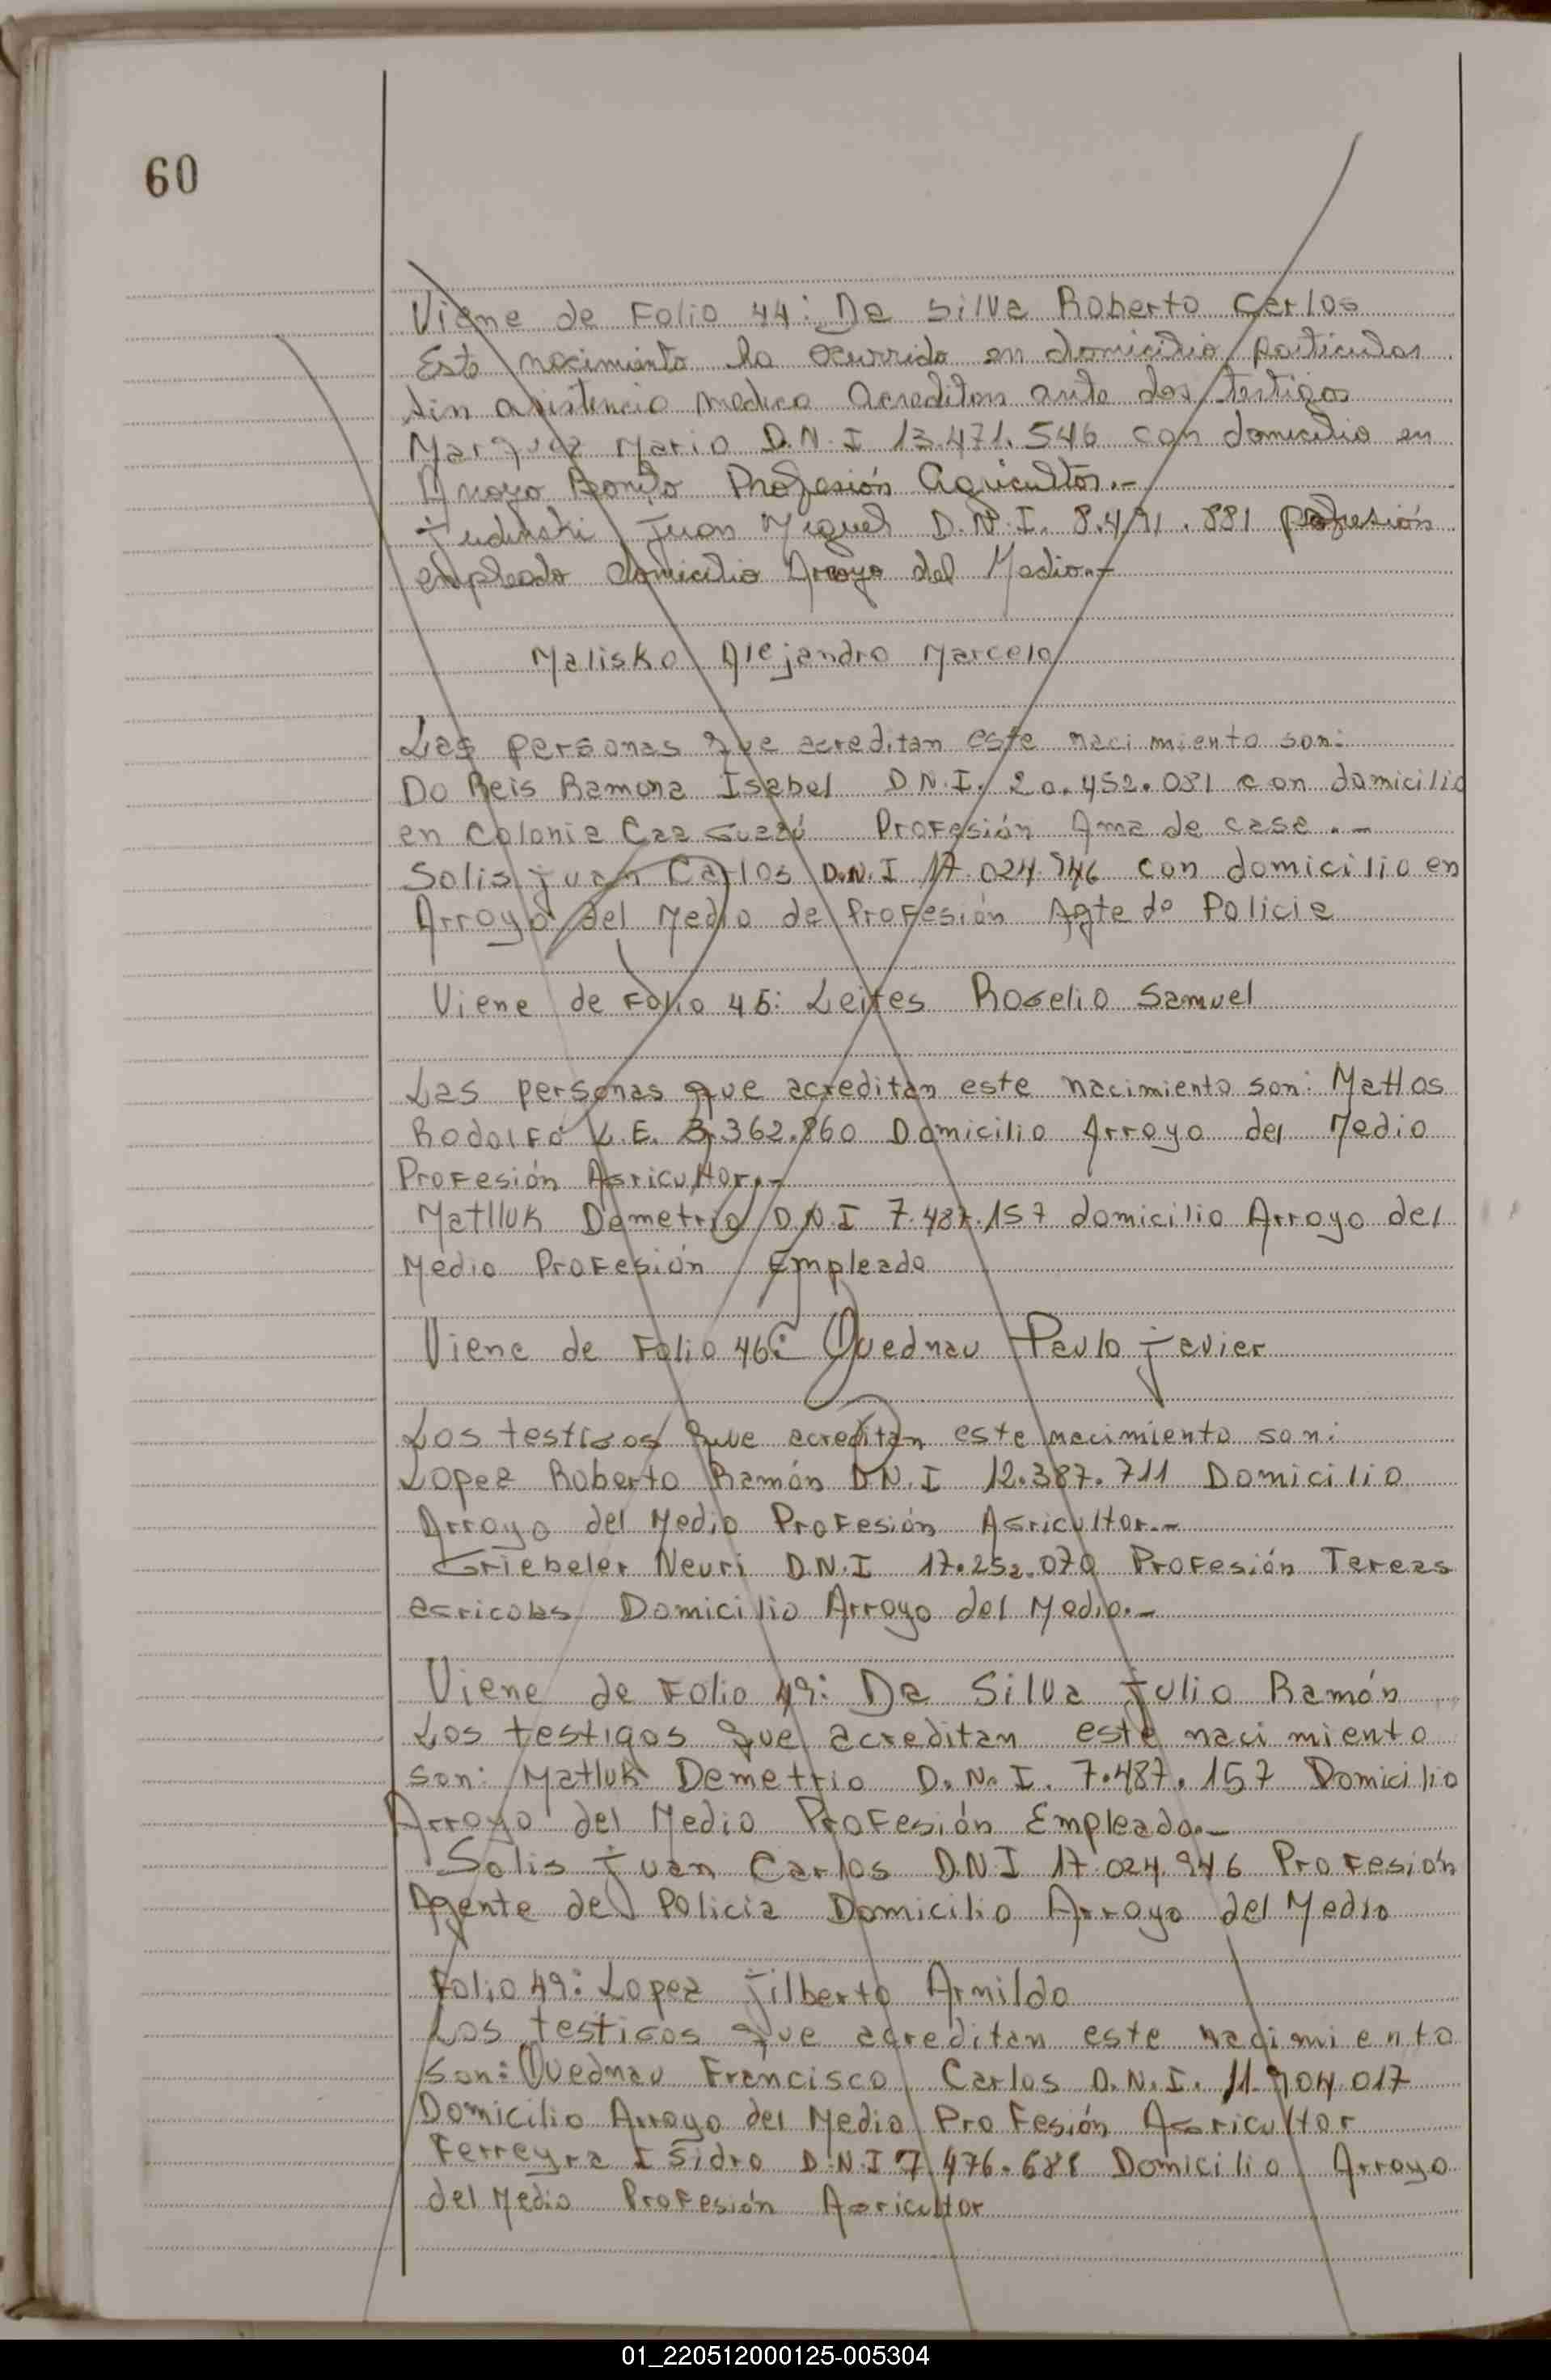 60
Viene de Folio 44: Da Silva Roberto Carlos
Este nacimiento ha ocurrido en domicilio particular
sin asistencia medica acreditan ante dos testigos
Marquez Mario D.N.I 13.471.546 con domicilio en
Arroyo Bonito Profesión Agricultor.-
Judinski Juan Miguel D.N.I. 8.491.881 profesión
empleado domicilio Arroyo del Medio.-
Malisko Alejandro Marcelo
Las personas que acreditan este nacimiento son:
Do Reis Ramona Isabel D.N.I. 20.452.081 con domicilio
en Colonia Caa Guazú Profesión Ama de casa.-
Solis Juan Carlos D.N.I 17.024.946 con domicilio en
Arroyo del Medio de Profesión Agte de Policia
Viene de Folio 45: Leites Rogelio Samuel
Las personas que acreditan este nacimiento son: Mattos
Rodolfo L.E. 3.362.860 Domicilio Arroyo del Medio
Profesión Agricultor.-
Matlluk Demetrio D.N.I 7.487.157 domicilio Arroyo del
Medio Profesión Empleado
Viene de Folio 46: Quednau Paulo Javier
Los testigos que acreditan este nacimiento son:
Lopez Roberto Ramón D.N.I 12.387.711 Domicilio
Arroyo del Medio Profesión Agricultor.-
Griebeler Neuri D.N.I 17.252.070 Profesión Tereas
agricolas Domicilio Arroyo del Medio.-
Viene de Folio 49: Da Silva Julio Ramón
Los testigos que acreditan este nacimiento
son: Matluk Demetrio D.N.I. 7.487.157 Domicilio
Arroyo del Medio Profesión Empleado.-
Solis Juan Carlos D.N.I 17.024.946 Profesión
Agente de Policia Domicilio Arroyo del Medio
Folio 49: Lopez Jilberto Arnildo
Los testigos que acreditan este nacimiento
son: Quednau Francisco Carlos D.N.I. 11.904.017
Domicilio Arroyo del Medio Profesión Agricultor
Ferreyra Isidro D.N.I 7.476.688 Domicilio Arroyo
del Medio Profesión Agricultor
01_220512000125-005304